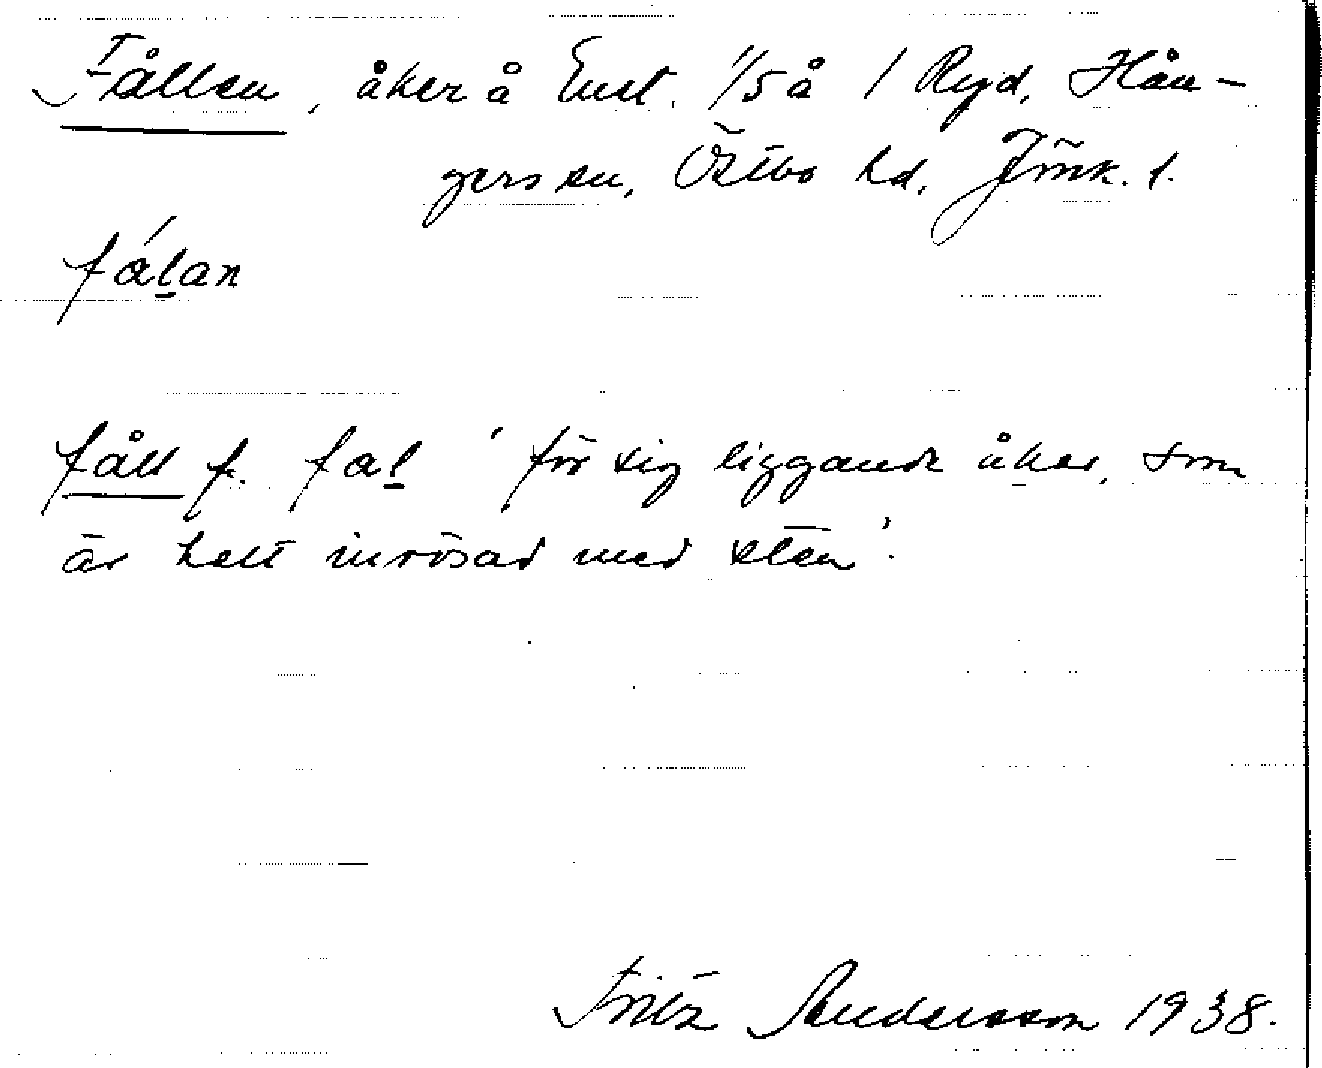 Fållen, åker å Enet. 1/5 å 1 Ryd, Hån-
gers sn, Östbo hd, Jönk. l.
fålan
fåll f. fal ' för sig liggande åker, som
är helt inrösad med sten'.
Fritz Andersson 1938.